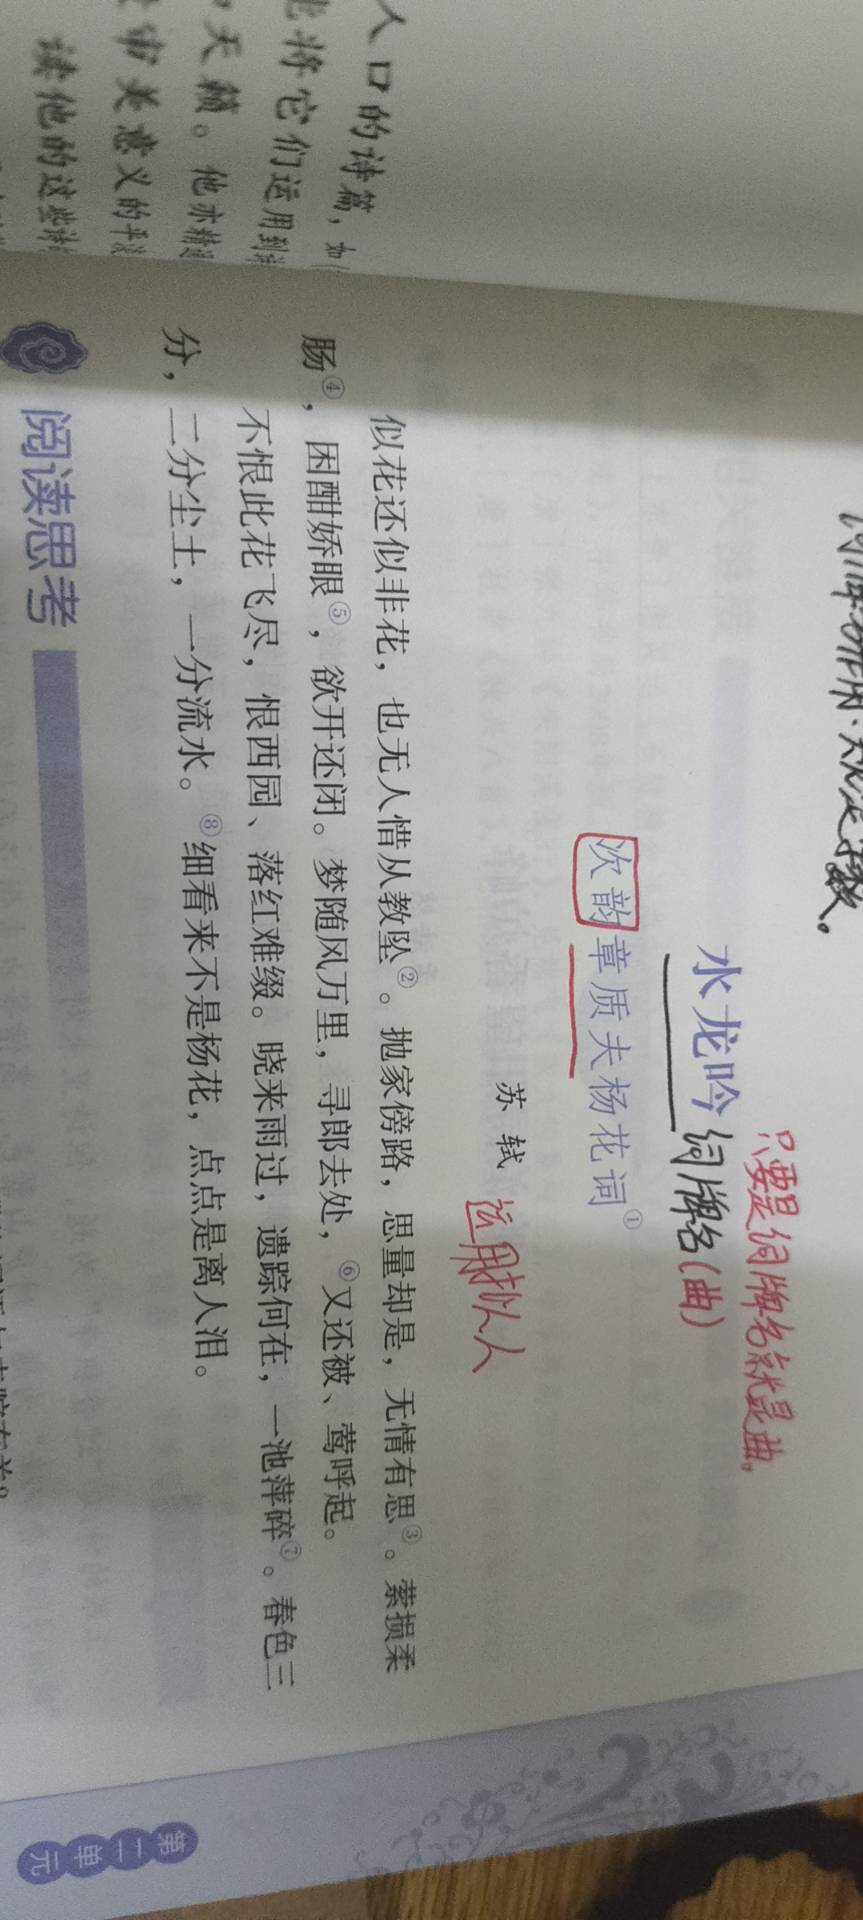 人口的诗篇，如
将它们运用到
天籁。他亦精通
审美意义的平淡
读他的这些诗
数。
只要是词牌名就是曲。
水龙吟 词牌名(曲)
次韵章质夫杨花词①
苏轼 运用拟人
似花还似非花，也无人惜从教坠②。抛家傍路，思量却是，无情有思③。萦损柔
肠④，困酣娇眼⑤，欲开还闭。梦随风万里，寻郎去处，⑥又还被、莺呼起。
不恨此花飞尽，恨西园、落红难缀。晓来雨过，遗踪何在，一池萍碎⑦。春色三
分，二分尘土，一分流水。⑧细看来不是杨花，点点是离人泪。
阅读思考
第二单元